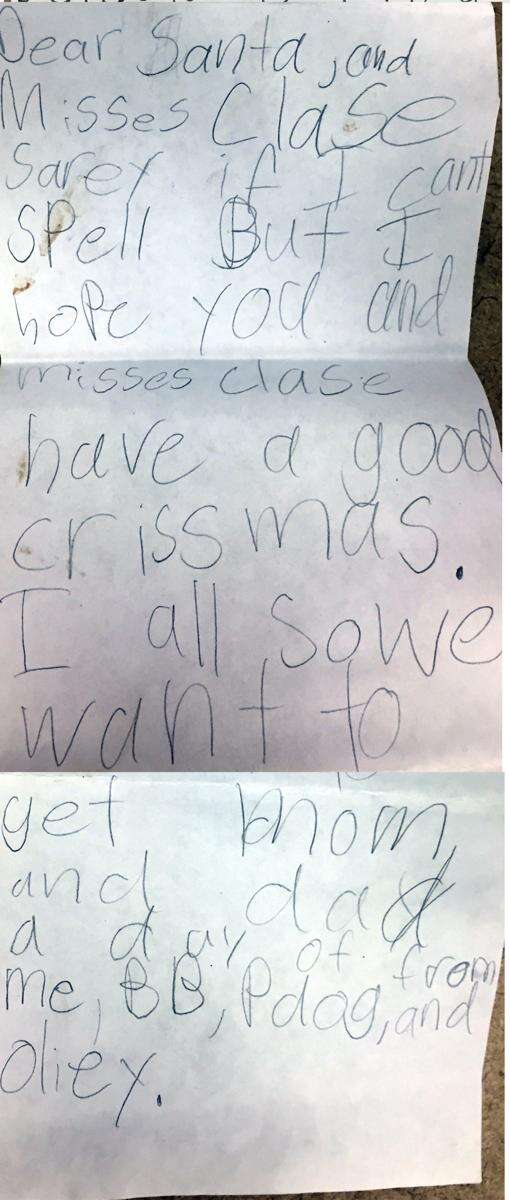 Dear Santa, and
Misses Clase
Sarey if I cant
SPell But I
hope you and
misses clase
have a good
crissmas.
I all sowe
want to
get mom
and dad
a day of from
me, BB, Pdog, and
oliey.